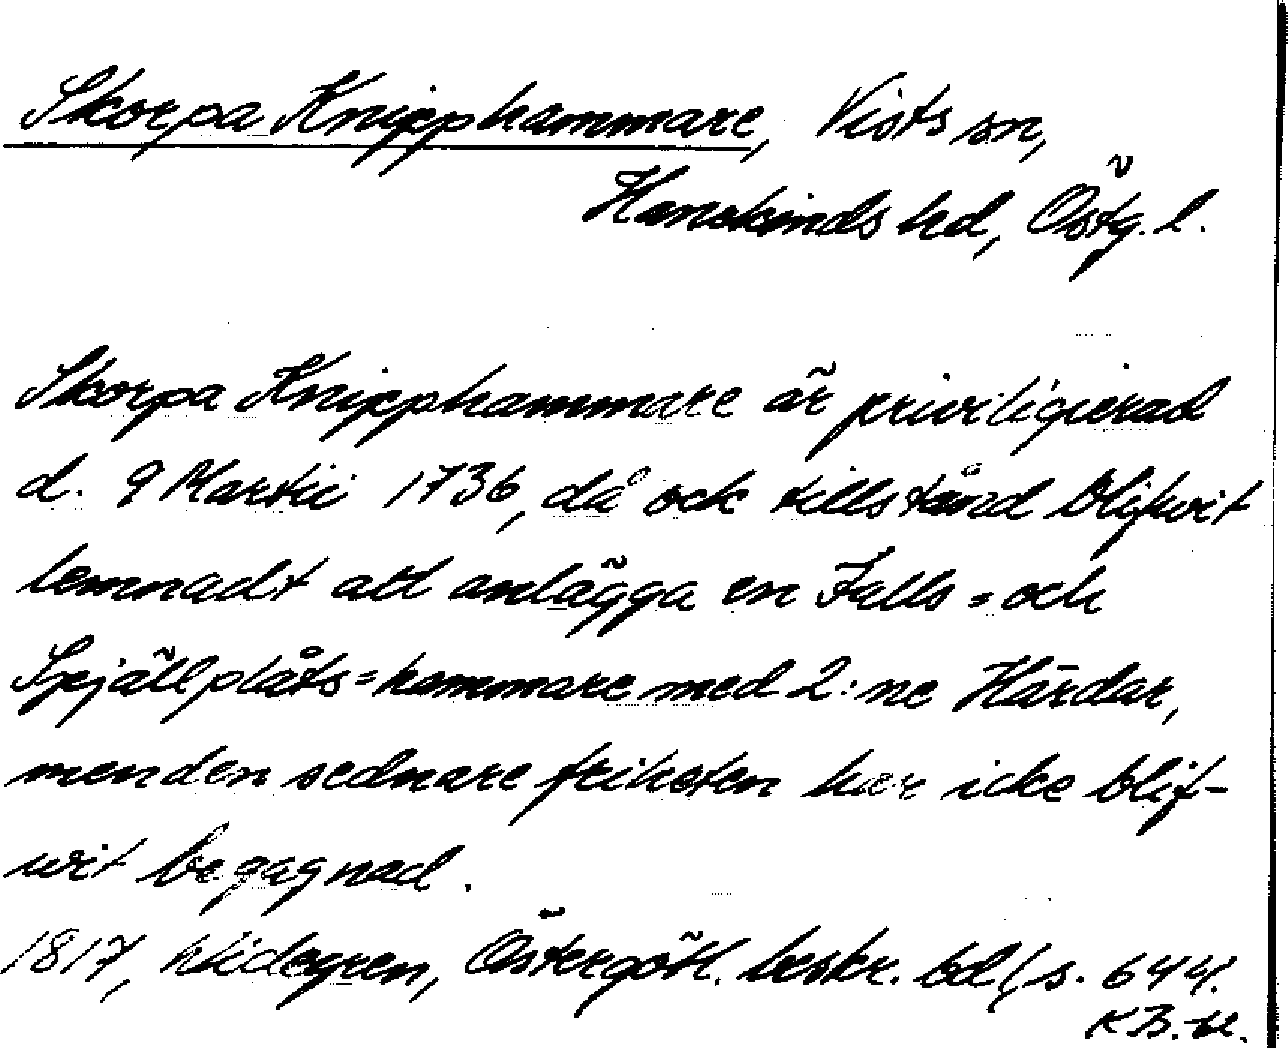 Skorpa Knipphammare, Vists sn,
Hanekinds hd, Östg. l.
Skorpa Knipphammare är priviligierad
d. 9 Martii 1736, då ock tillstånd blifwit
lemnadt att anlägga en Falls- och
Spjällplåts-hammare med 2:ne Härdar,
men den sednare friheten har icke blif-
wit begagnad.
1817, Widegren, Östergötl. beskr. bd 1 s. 644.